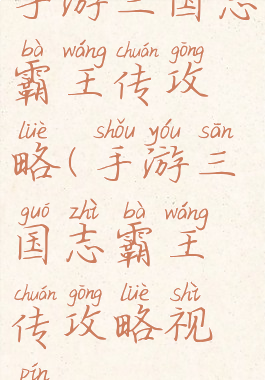 手游三国志
bà wáng chuán gōng
霸王传攻
lüè shǒu yóu sān
略(手游三
guó zhì bà wáng
国志霸王
chuán gōng lüè shì
传攻略视
pín